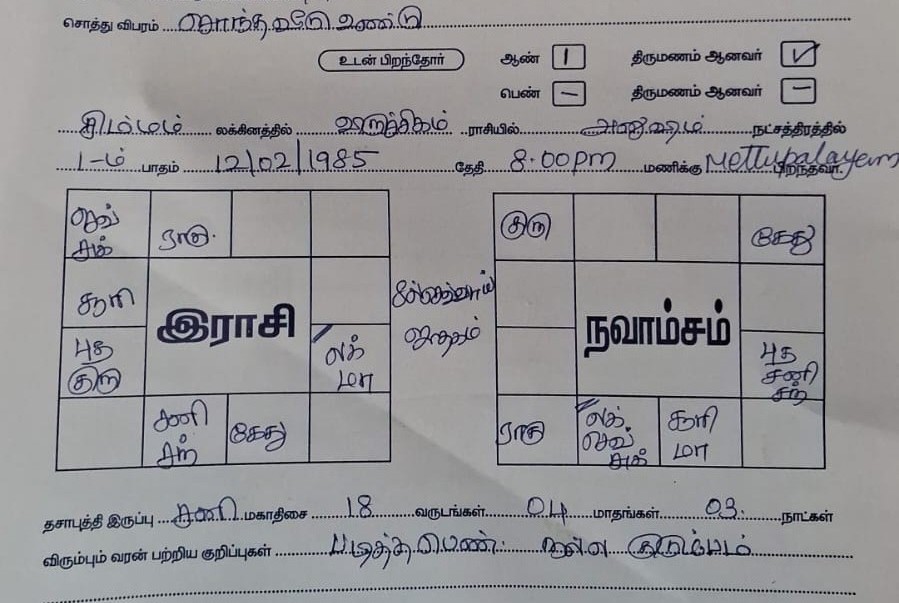 சொத்து விபரம் சொந்த வீடு உண்டு
உடன் பிறந்தோர் ஆண் 1 திருமணம் ஆனவர் ✓
பெண் — திருமணம் ஆனவர் —
சிம்மம் லக்கினத்தில் விருச்சிகம் ராசியில் அனுஷம் நட்சத்திரத்தில்
1-ம் பாதம் 12/02/1985 தேதி 8.00pm மணிக்கு Mettupalayam பிறந்தவர்
செவ் சுக்
ராகு
சூரி
புத குரு
லக் மா
சனி சந்
கேது
இராசி
ஜாதகம்
குரு
கேது
புத சனி சந்
ராகு
லக் செவ் சுக்
சூரி மா
நவாம்சம்
தசாபுத்தி இருப்பு சனி மகாதிசை 18 வருடங்கள் 04 மாதங்கள் 03 நாட்கள்
விரும்பும் வரன் பற்றிய குறிப்புகள் படித்த பெண். நல்ல குடும்பம்